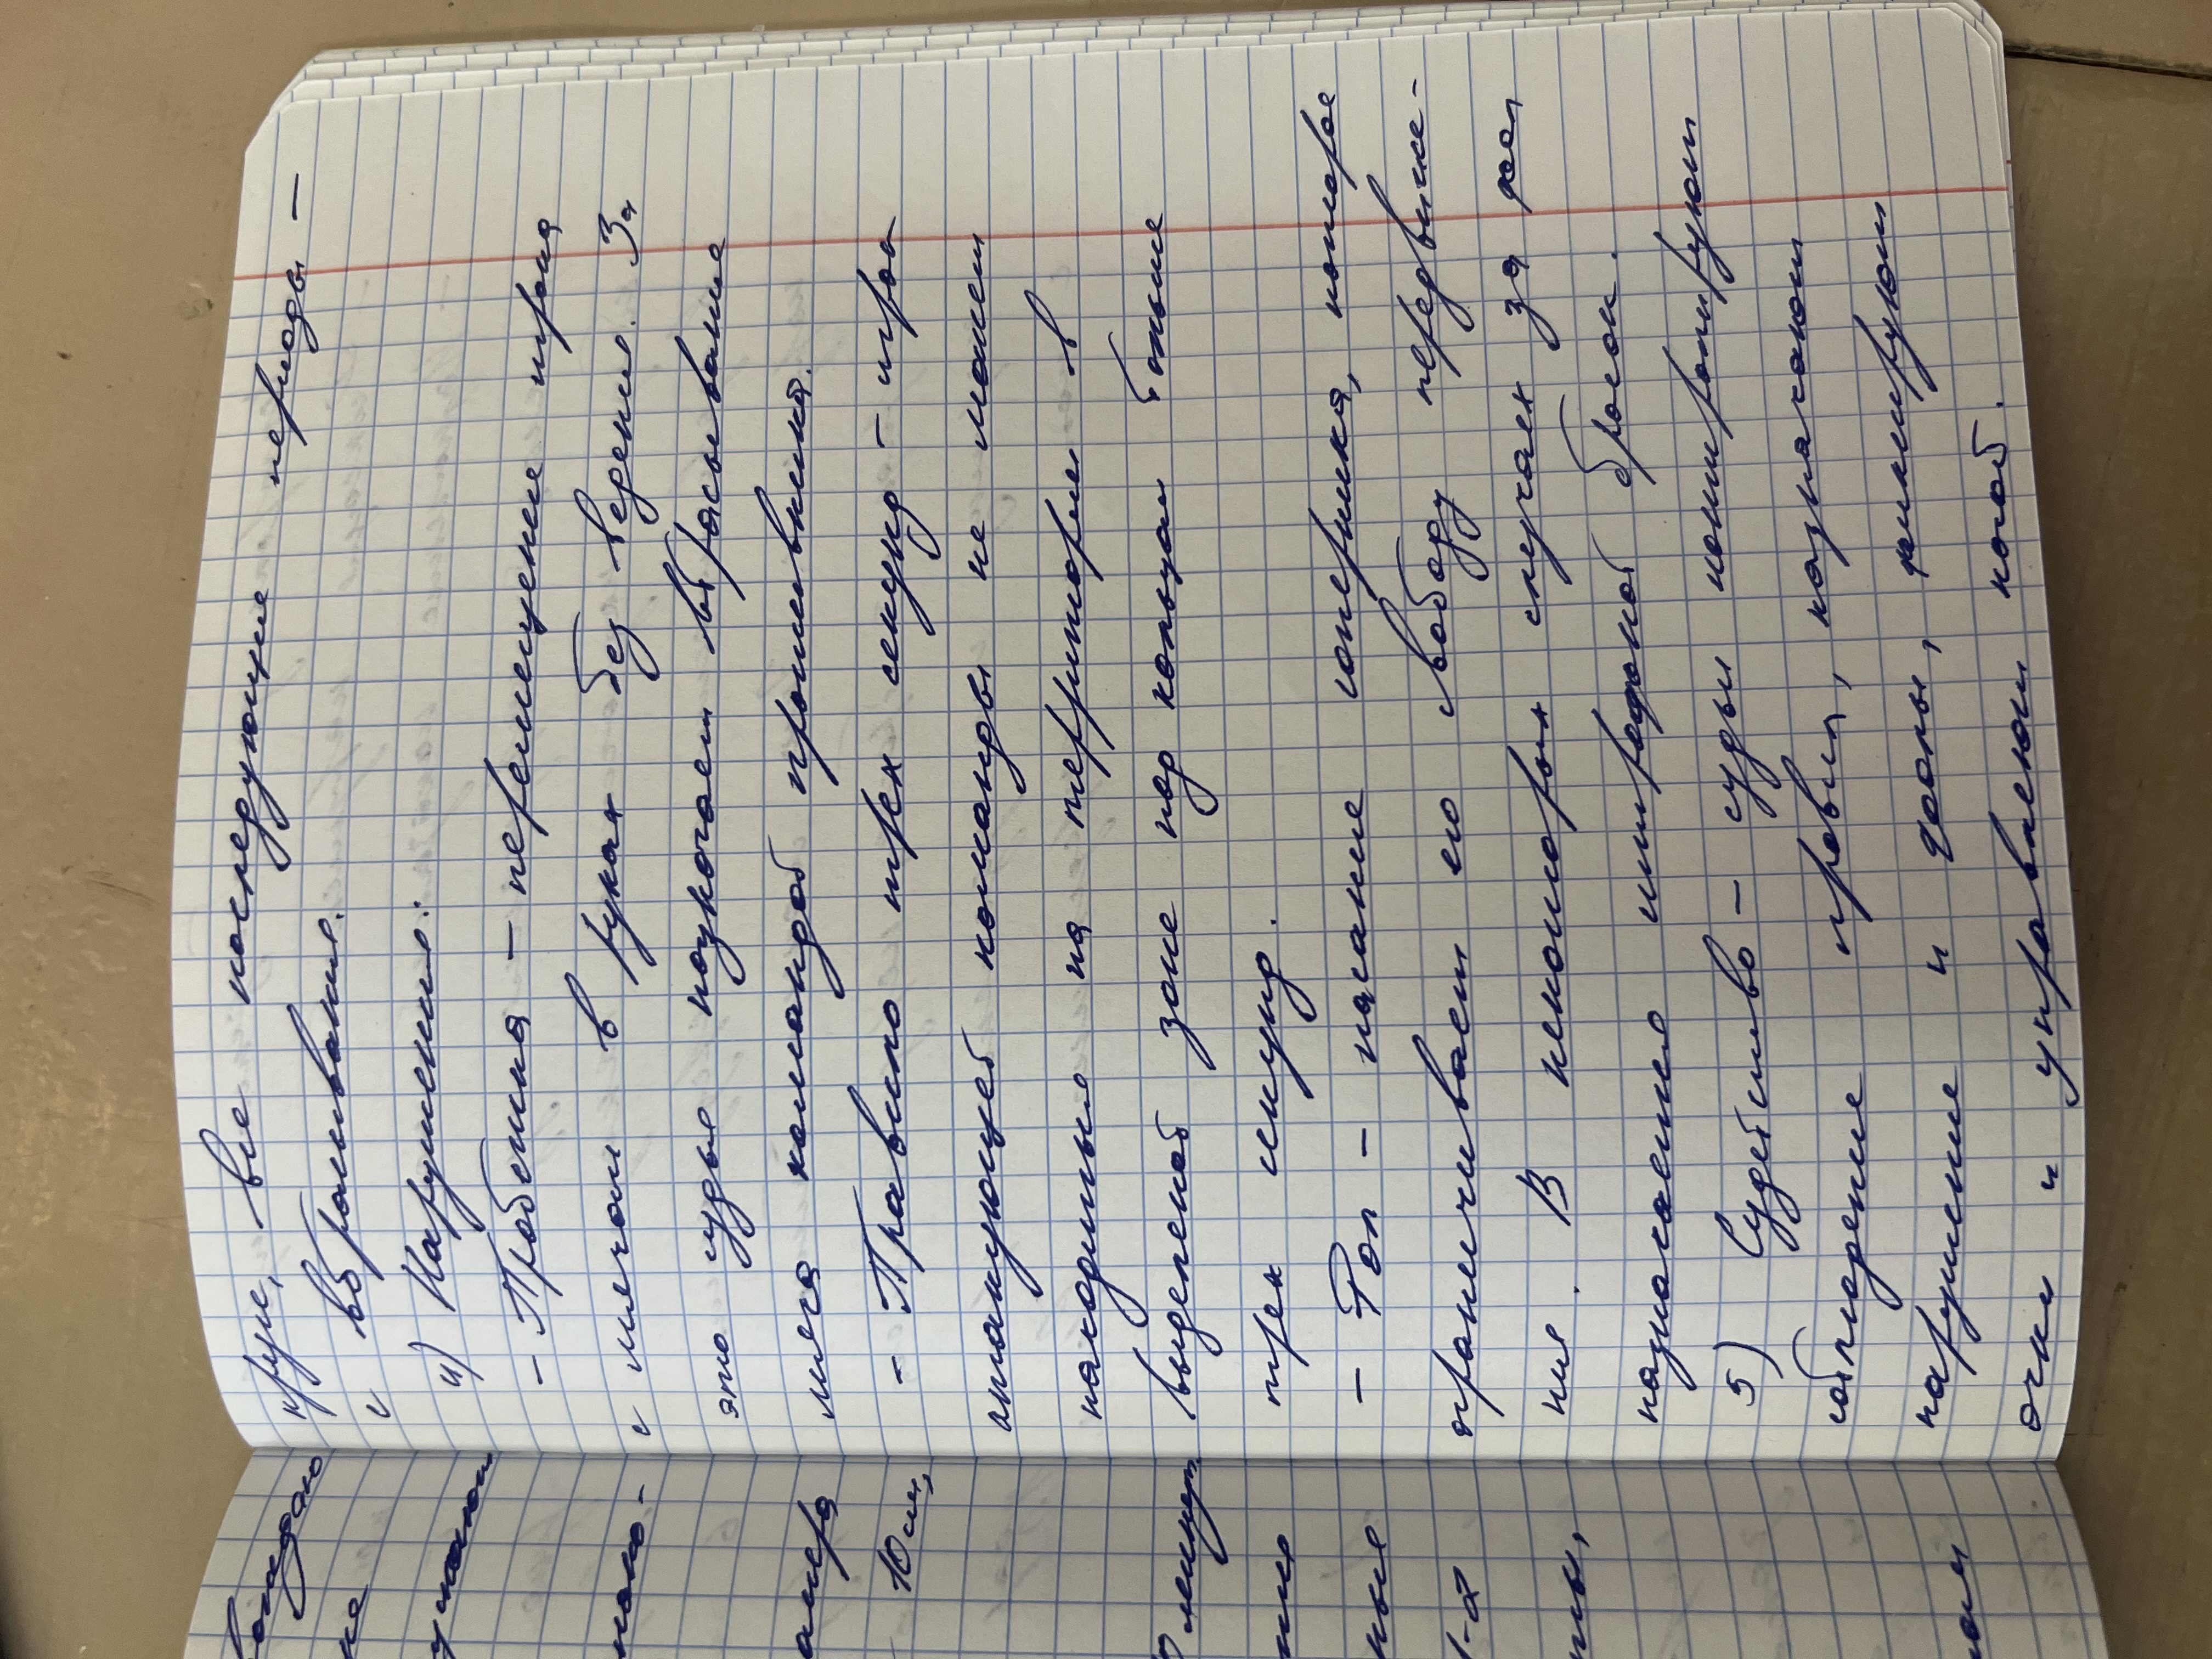 круге, все последующие периоды -
с вбрасывания.
4) Нарушения:
- Пробежка - перемещение игрока
с мячом в руках без ведения. За
это судья назначает вбрасывание
мяча командой противника.
- Правило трех секунд - игрок
атакующей команды не может
находиться на территории в
выделенной зоне под кольцом больше
трех секунд.
- Фол - касание соперника, которое
ограничивает его свободу передвиже-
ния. В некоторых случаях за фол
назначается штрафной бросок.
5) Судейство - судьи контролируют
соблюдение правил, назначают
нарушение и фолы, фиксируют
очки и управляют игрой.
10 см,
1-й